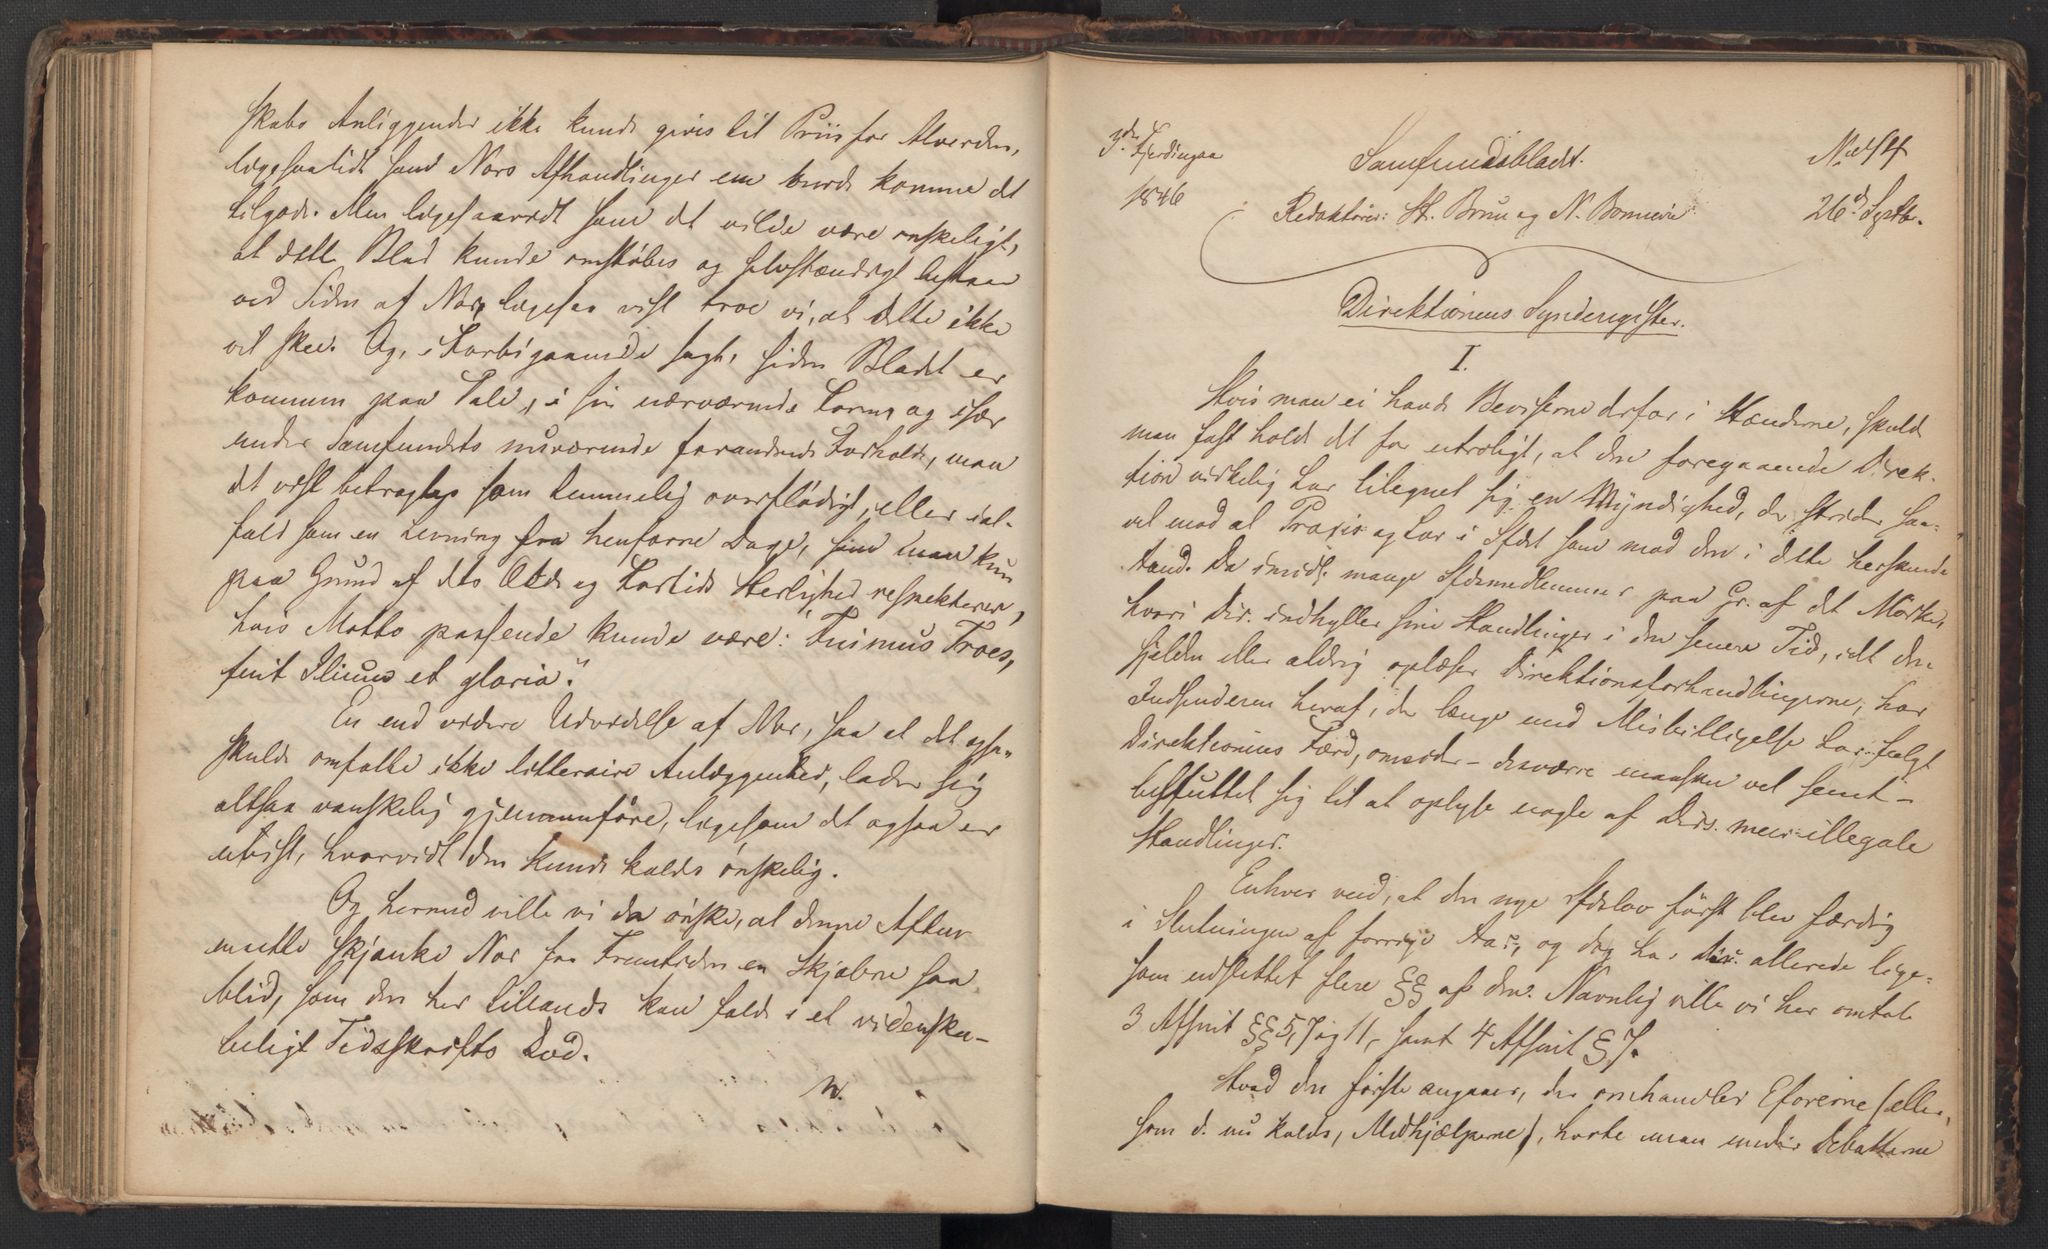 skabs Anliggender ikke kunde gives til Priis for Alverden,
ligesaalidt som Nors Afhandlinger em burde komme det
tilgode. Men ligesaavidt som det vilde være ønskeligt,
at dette Blad kunde omstøbes og selvstændigt bestaae
ved Siden af Nor, ligesaa vist troe vi, at dette ikke
vil skee. Og, i Forbigaaende sagt, siden Bladet er
kommen paa Tale, i sin nærværende Form, og især
under Samfundets nuværende forandrede Forholde, maa
det vist betragtes som temmelig overflødigt, eller ial-
fald som en Levning fra henfarne Dage, som man kun
paa Grund af dets Ælde og Fortids Herlighed respekterer,
hvis Motto passende kunde være: "Fuimus Troes,
fuit Ilium et gloria".
En end videre Udvidelse af Nor, saa at det ogsaa
skulde omfatte ikke litteraire Anliggender, lader sig
altsaa vanskelig gjennemføre, ligesom det ogsaa er
uvist, hvorvidt den kunde kaldes ønskelig.
Og hermed ville vi da ønske, at denne Aften
maatte skjænke Nor for Fremtiden en Skjæbne saa
blid, som den her tillands kan falde i et videnska-
beligt Tidsskrifts Lod.
N.
3die Fjerdingaar
1846
Samfundsbladet.
Redaktører: H. Brun og N. Bonnevie
26d Septb.
Direktionens Synderegister.
I.
Hvis man ei havde Beviserne derfor i Hænderne, skulde
man fast holde det for utroligt, at den foregaaende Direk-
tion virkelig har tilegnet sig en Myndighed, der strider saa-
vel mod al Praxis og Lov i Sfdet som mod den i dette herskende
Aand. Da imidl. mange Sfdsmedlemmer paa Gr. af det Mørke,
hvori Dir. indhyller sine Handlinger i den senere Tid, idet den
sjelden eller aldrig oplæser Direktionsforhandlingerne, har
Indsenderen heraf, der længe med Misbilligelse har fulgt
Direktionens Færd, omsider – desværre maaskee vel seent –
besluttet sig til at oplyse nogle af Dirs. meer illegale
Handlinger.
Enhver veed, at den nye Sfdslov først blev færdig
i Slutningen af forrige Aar, og dog har Dir. allerede lige-
som udslettet flere §§ af den. Navnlig ville vi her omtale
3 Afsnit §§ 5, 7 og 11, samt 4 Afsnit § 7.
Hvad den første angaaer, der omhandler Eforerne (eller,
som d. nu kaldes, Medhjælperne), hørte man under Debatterne